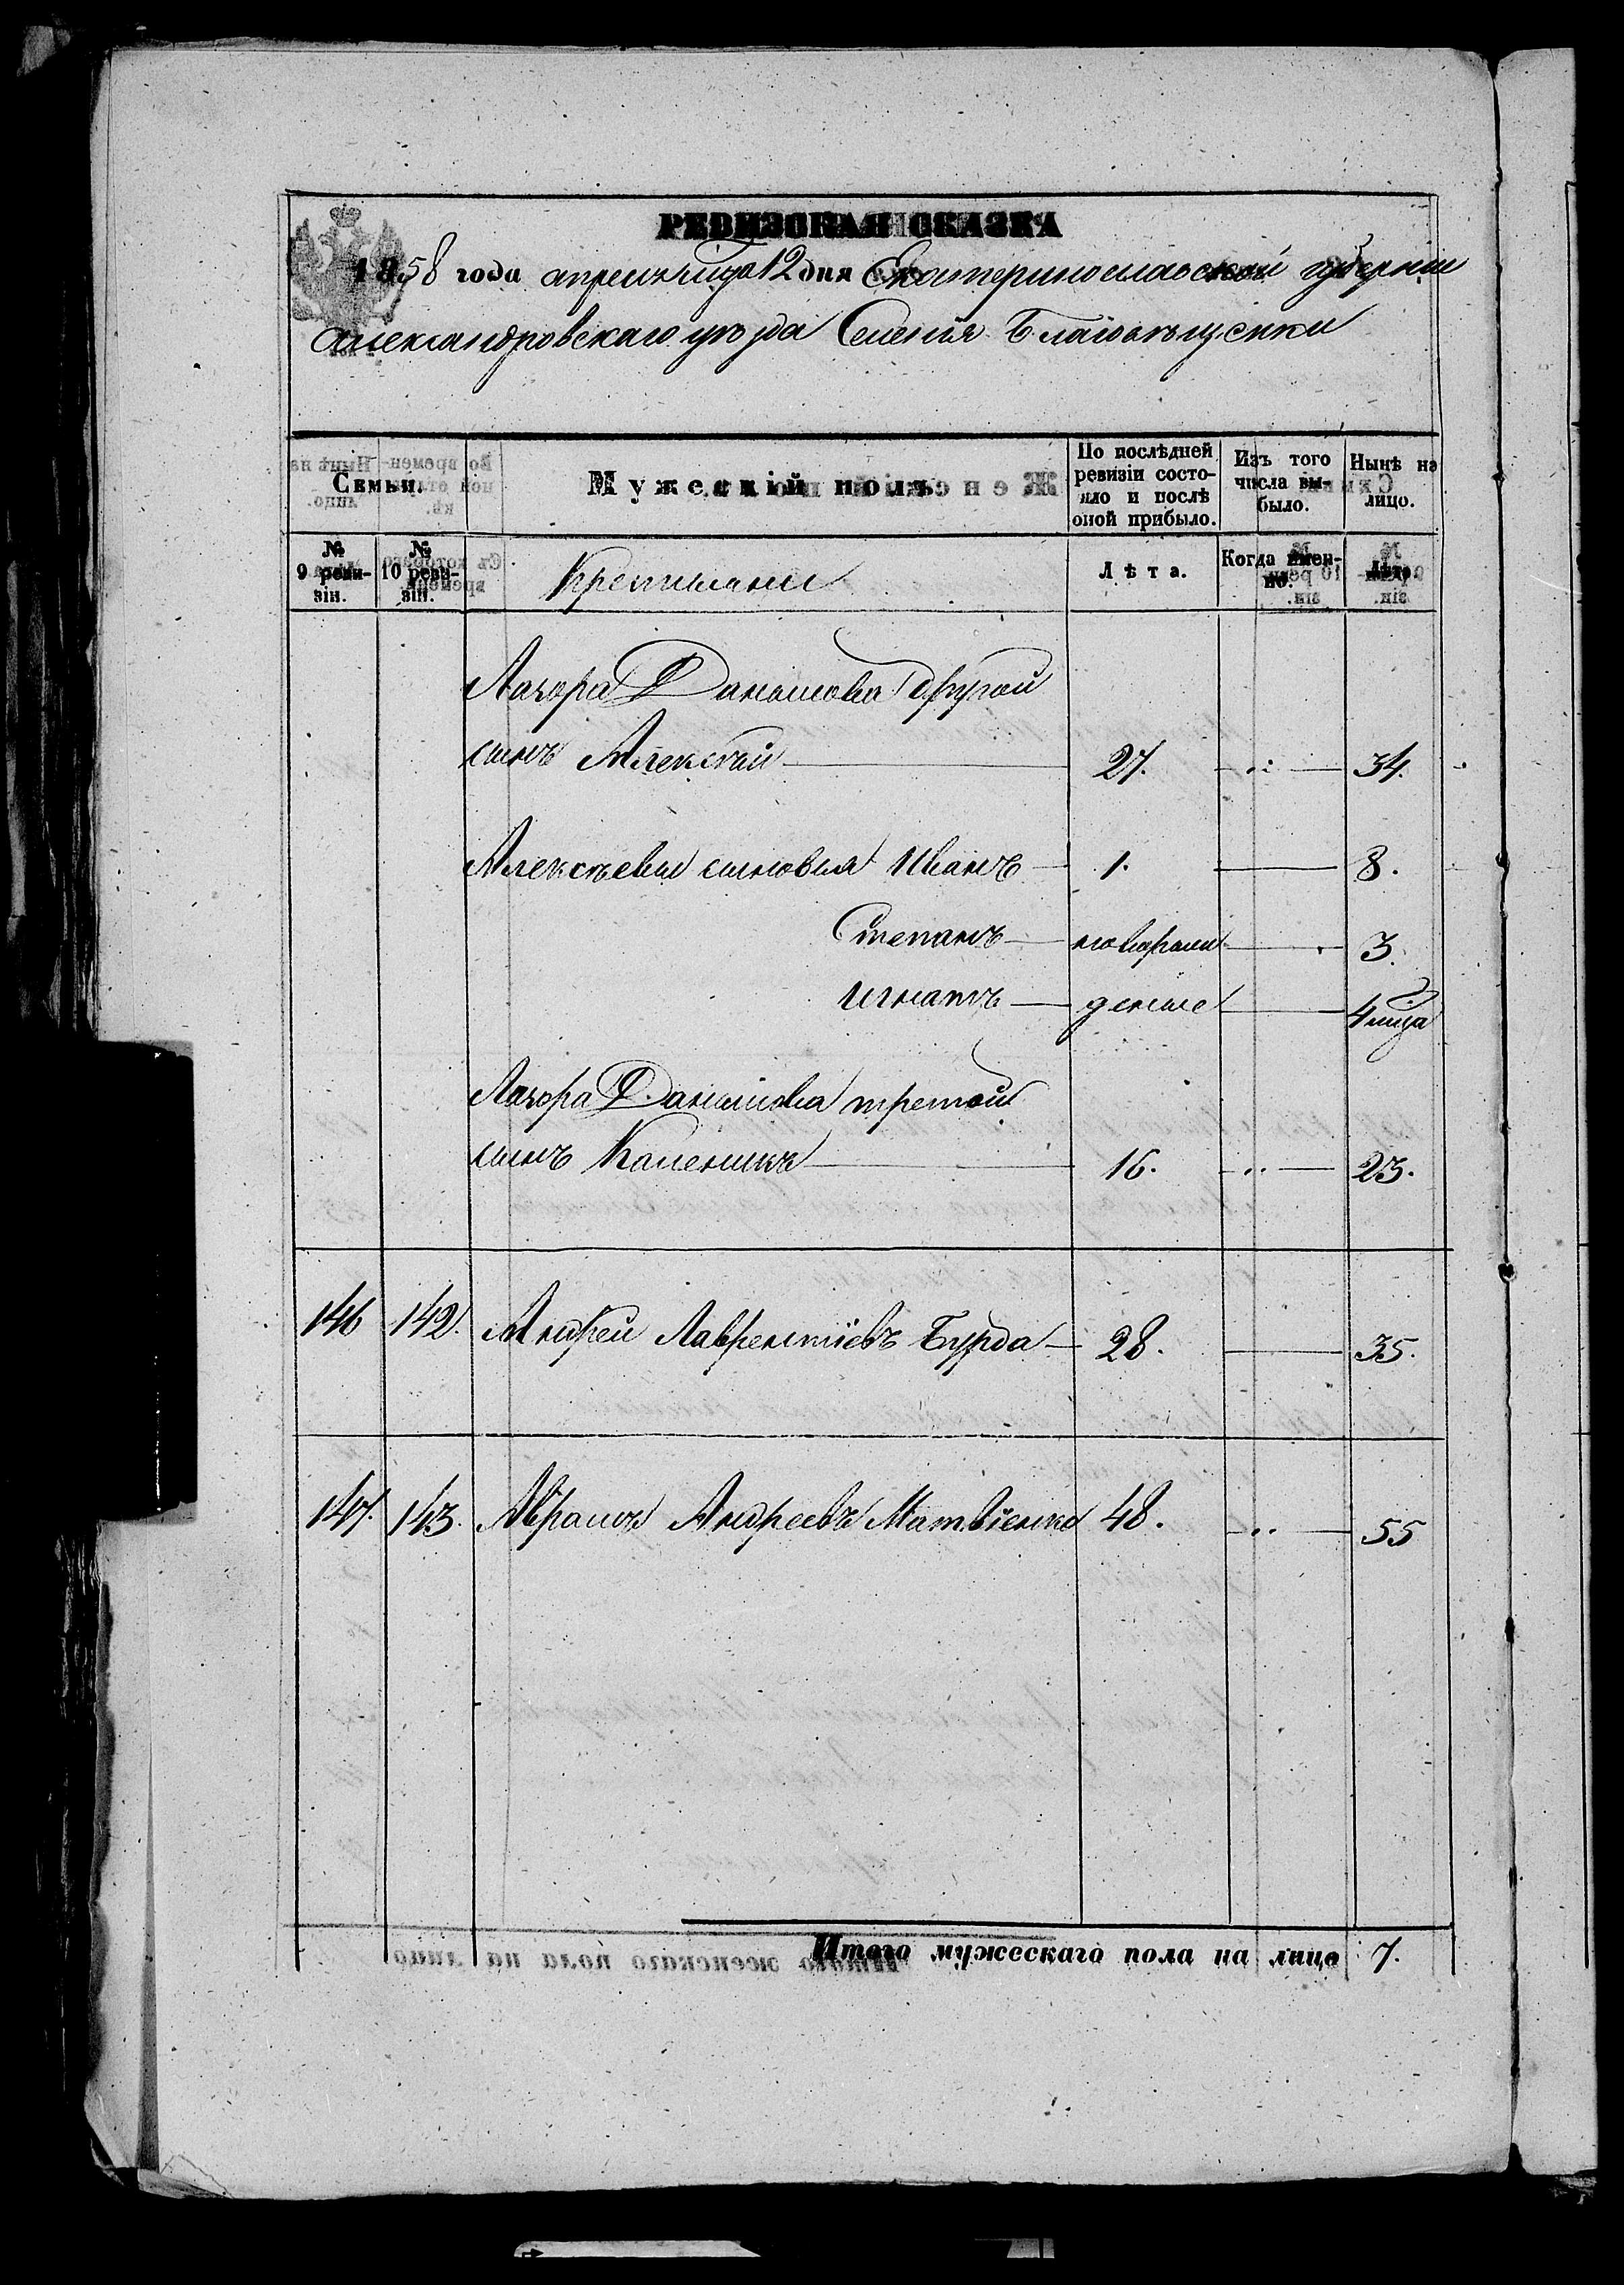 РЕВИЗСКАЯ СКАЗКА
1858 года апреля мца 12 дня Екатеринославской губернии
Александровскаго уѣзда Селенія Благовѣщенки
Семьи.
Мужескій полъ.
По послѣдней ревизіи состояло и послѣ оной прибыло.
Изъ того числа выбыло.
Нынѣ на лицо.
№ 9 ревизіи.
№ 10 ревизіи.
Лѣта.
Когда именно.
Лѣта.
Данилова другой
сынъ Алексѣй 27. 34.
Алексѣевы сыновья Иванъ 1. 8.
Степанъ новорож 3.
Игнатъ денные 4 мца
Данилова третой
сынъ Каленикъ 16. 23.
146 142. Андрей Лаврентіевъ Бурда 28. 35.
147. 143. Абрамъ Андреевъ Матвіенко 48. 55
Итого мужескаго пола на лицо 7.